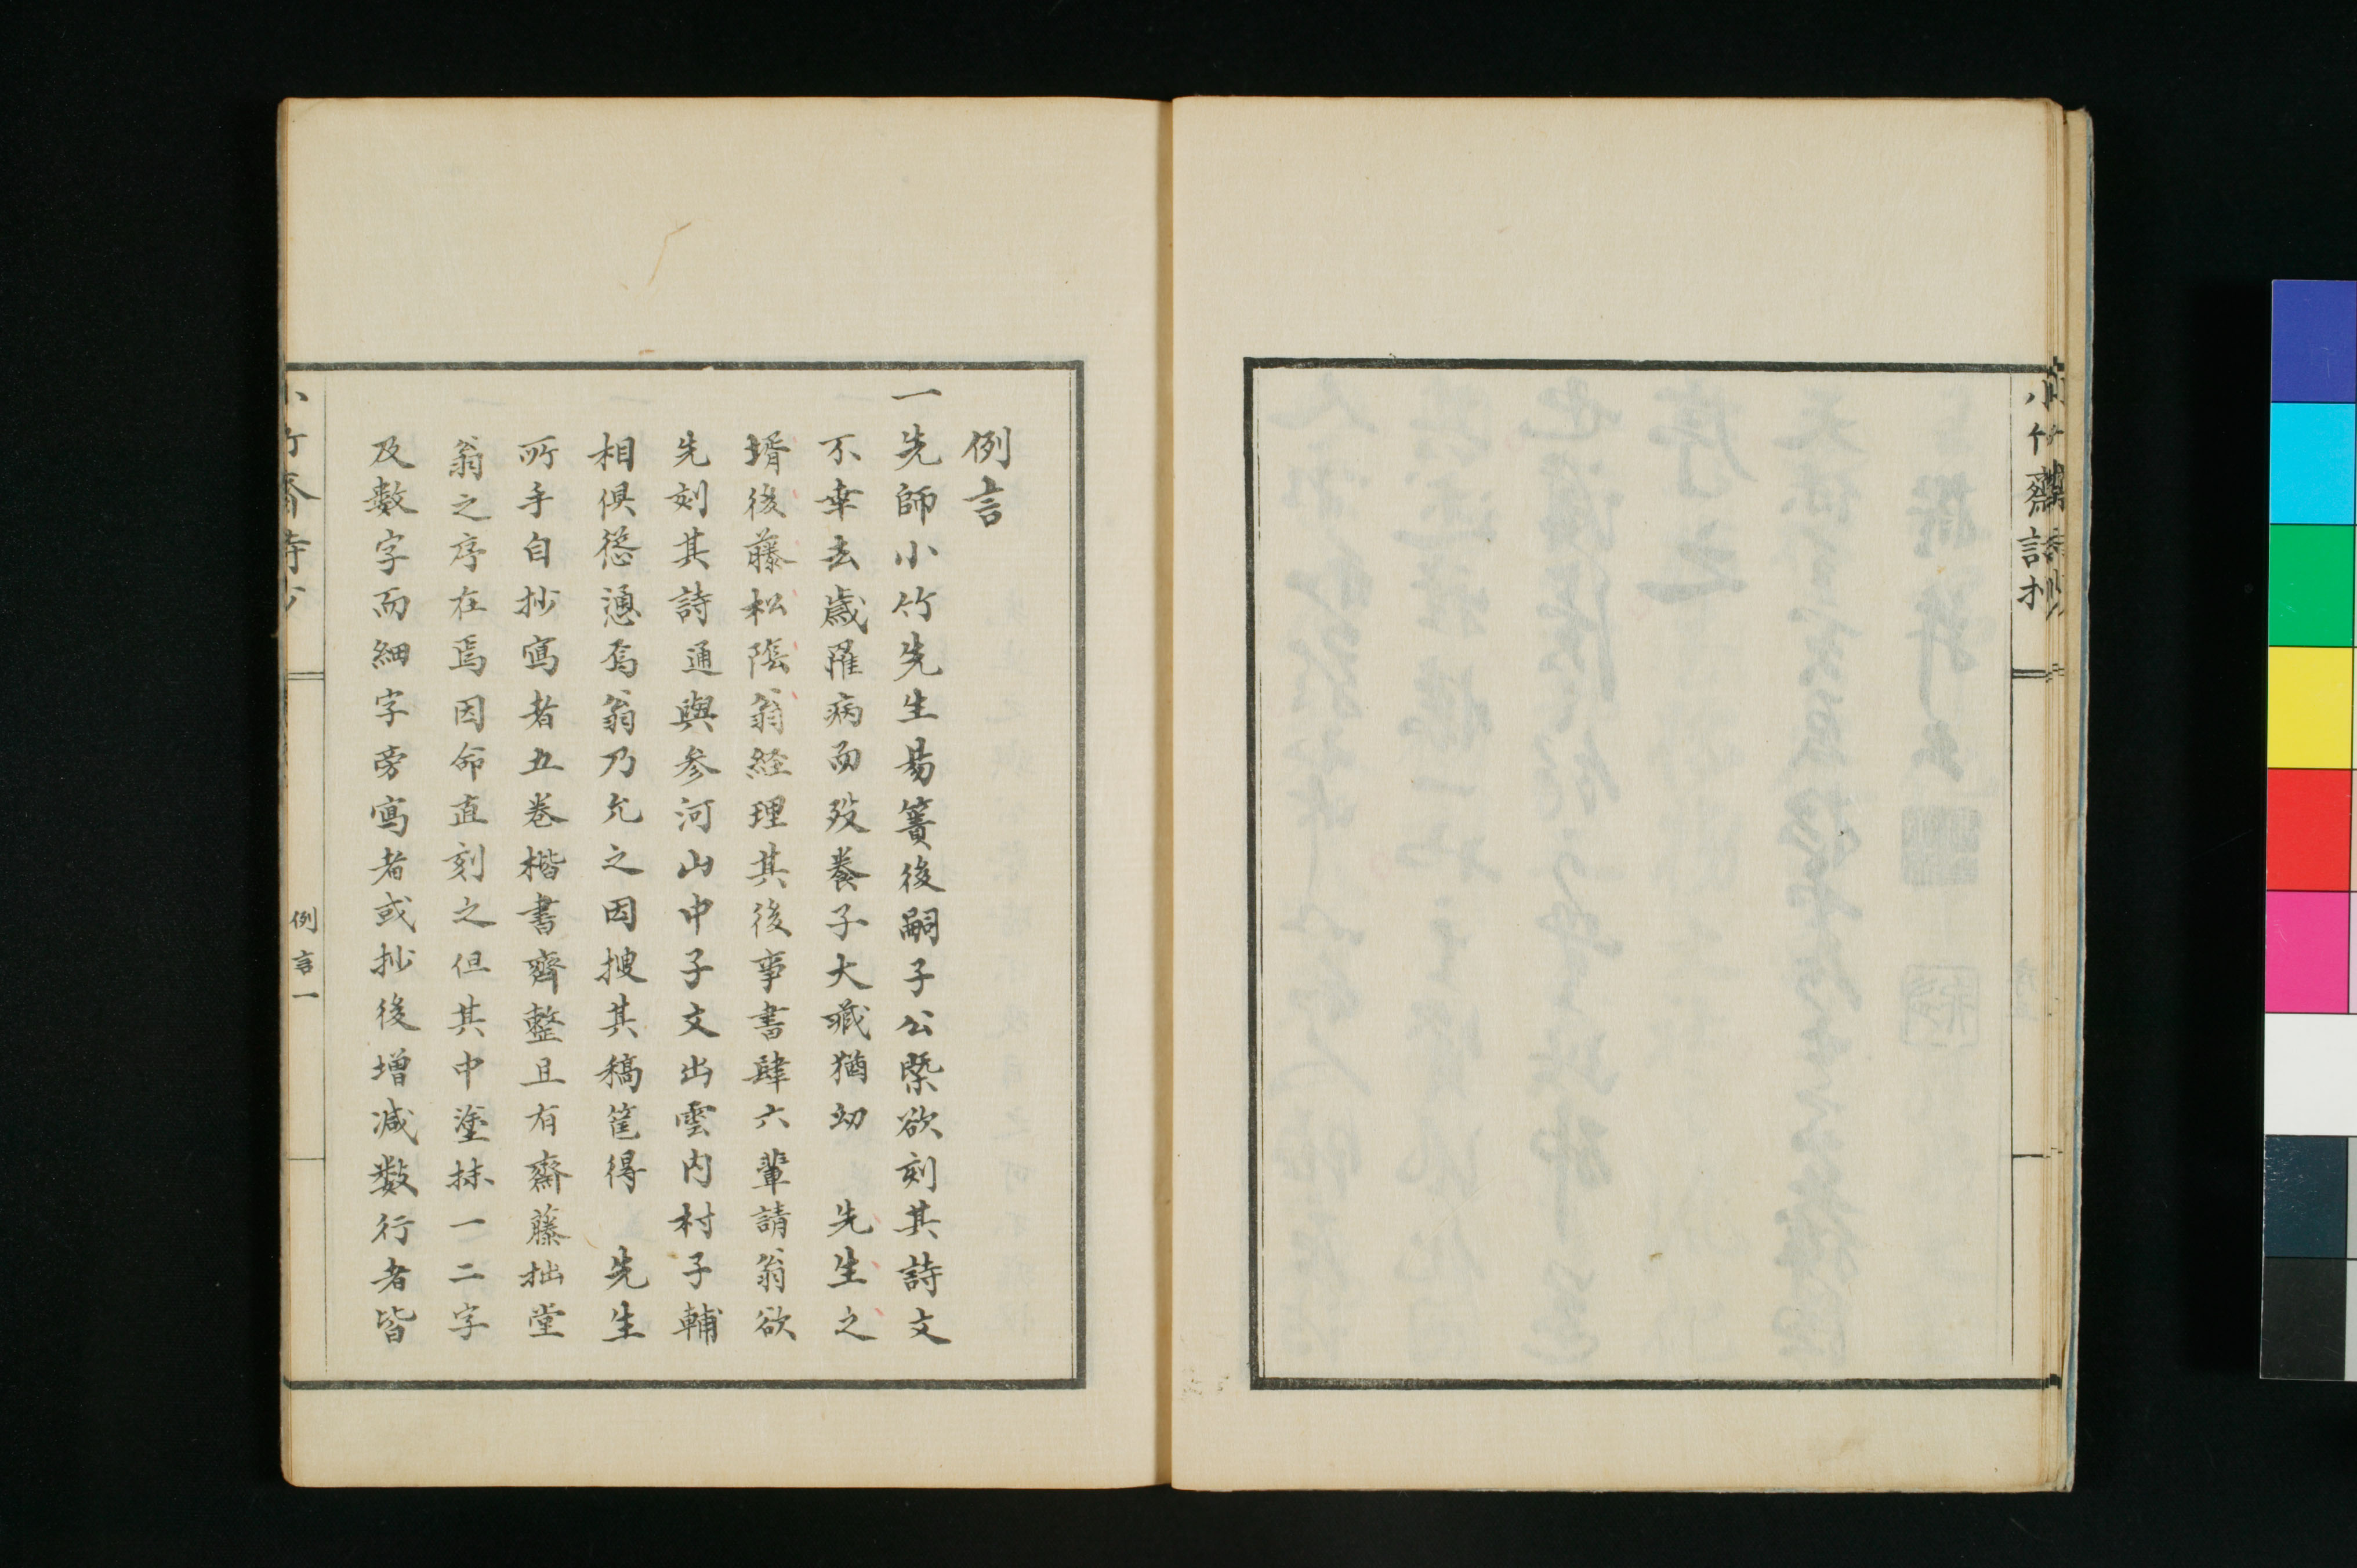 小竹齋詩抄
例言
一先師小竹先生易簀後嗣子公槩欲刻其詩文
不幸去歳罹病而歿養子大蔵猶幼　先生之
壻後藤松陰翁経理其後事書肆六輩請翁欲
先刻其詩通與参河山中子文出雲内村子輔
相倶慫慂焉翁乃允之因捜其稿筐得　先生
所手自抄寫者五巻楷書齊整且有齋藤拙堂
翁之序在焉因命直刻之但其中塗抹一二字
及數字而細字旁寫者或抄後増減数行者皆
小竹齋詩抄
例言一